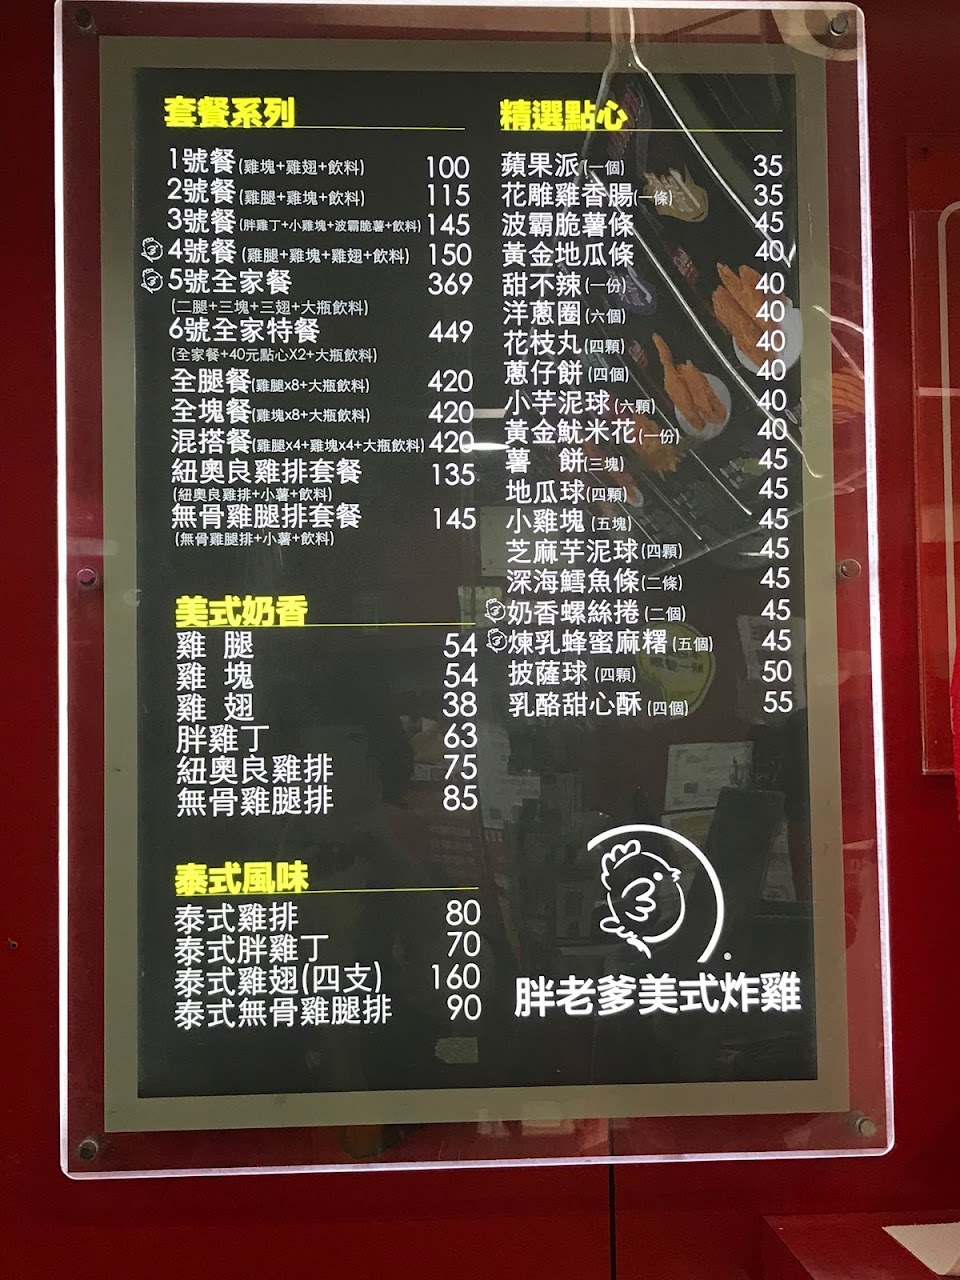 套餐系列
1號餐(雞塊+雞翅+飲料) 100
2號餐(雞腿+雞塊+飲料) 115
3號餐(胖雞丁+小雞塊+波霸脆薯+飲料) 145
4號餐(雞腿+雞塊+雞翅+飲料) 150
5號全家餐 369
(二腿+三塊+三翅+大瓶飲料)
6號全家特餐 449
(全家餐+40元點心X2+大瓶飲料)
全腿餐(雞腿x8+大瓶飲料) 420
全塊餐(雞塊x8+大瓶飲料) 420
混搭餐(雞腿x4+雞塊x4+大瓶飲料) 420
紐奧良雞排套餐 135
(紐奧良雞排+小薯+飲料)
無骨雞腿排套餐 145
(無骨雞腿排+小薯+飲料)
美式奶香
雞 腿 54
雞 塊 54
雞 翅 38
胖雞丁 63
紐奧良雞排 75
無骨雞腿排 85
泰式風味
泰式雞排 80
泰式胖雞丁 70
泰式雞翅(四支) 160
泰式無骨雞腿排 90
精選點心
蘋果派(一個) 35
花雕雞香腸(一條) 35
波霸脆薯條 45
黃金地瓜條 40
甜不辣(一份) 40
洋蔥圈(六個) 40
花枝丸(四顆) 40
蔥仔餅(四個) 40
小芋泥球(六顆) 40
黃金魷米花(一份) 40
薯 餅(三塊) 45
地瓜球(四顆) 45
小雞塊(五塊) 45
芝麻芋泥球(四顆) 45
深海鱈魚條(二條) 45
奶香螺絲捲(二個) 45
煉乳蜂蜜麻糬(五個) 45
披薩球(四顆) 50
乳酪甜心酥(四個) 55
胖老爹美式炸雞